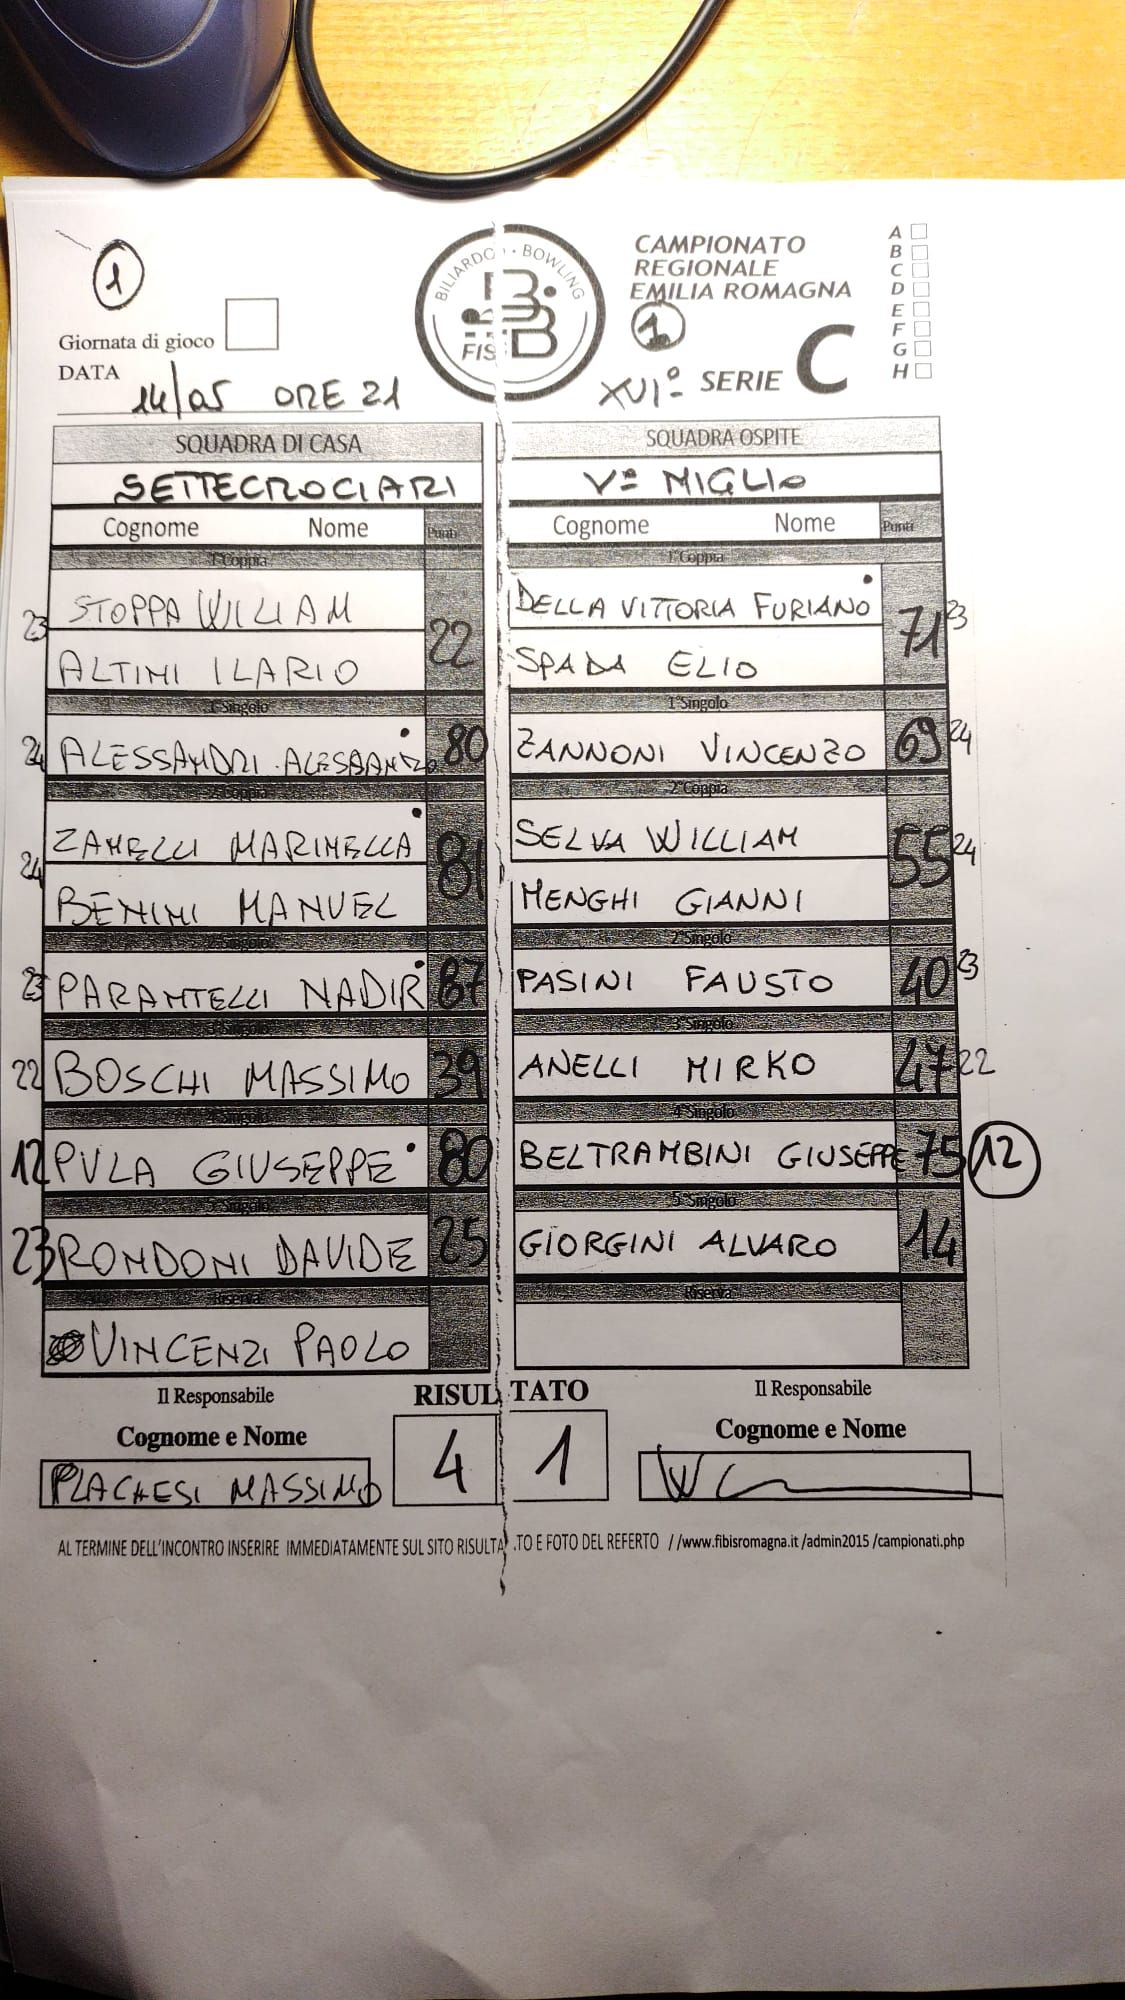 1
BILIARDO · BOWLING
FIS
CAMPIONATO
REGIONALE
EMILIA ROMAGNA
A
B
C
D
E
F
G
H
Giornata di gioco
DATA 14/05 ORE 21
XVIº SERIE C
SQUADRA DI CASA SQUADRA OSPITE
SETTECROCIARI Vº MIGLIO
Cognome Nome Punti Cognome Nome Punti
1°Coppia 1°Coppia
23 STOPPA WILLIAM 22 DELLA VITTORIA FURIANO 71 23
ALTINI ILARIO SPADA ELIO
1°Singolo 1°Singolo
24 ALESSANDRI 80 ZANNONI VINCENZO 69 24
2°Coppia 2°Coppia
24 ZANELLI MARINELLA 81 SELVA WILLIAM 55 24
BENINI MANUEL MENGHI GIANNI
2°Singolo 2°Singolo
23 PARANTELLI NADIR 87 PASINI FAUSTO 40 23
3°Singolo 3°Singolo
22 BOSCHI MASSIMO 39 ANELLI MIRKO 47 22
4°Singolo 4°Singolo
12 PULA GIUSEPPE 80 BELTRAMBINI GIUSEPPE 75 12
5°Singolo 5°Singolo
23 RONDONI DAVIDE 25 GIORGINI ALVARO 14
Riserva Riserva
VINCENZI PAOLO
Il Responsabile RISULTATO Il Responsabile
Cognome e Nome 4 1 Cognome e Nome
PLACHESI MASSIMO
AL TERMINE DELL'INCONTRO INSERIRE IMMEDIATAMENTE SUL SITO RISULTA .TO E FOTO DEL REFERTO //www.fibisromagna.it /admin2015 /campionati.php